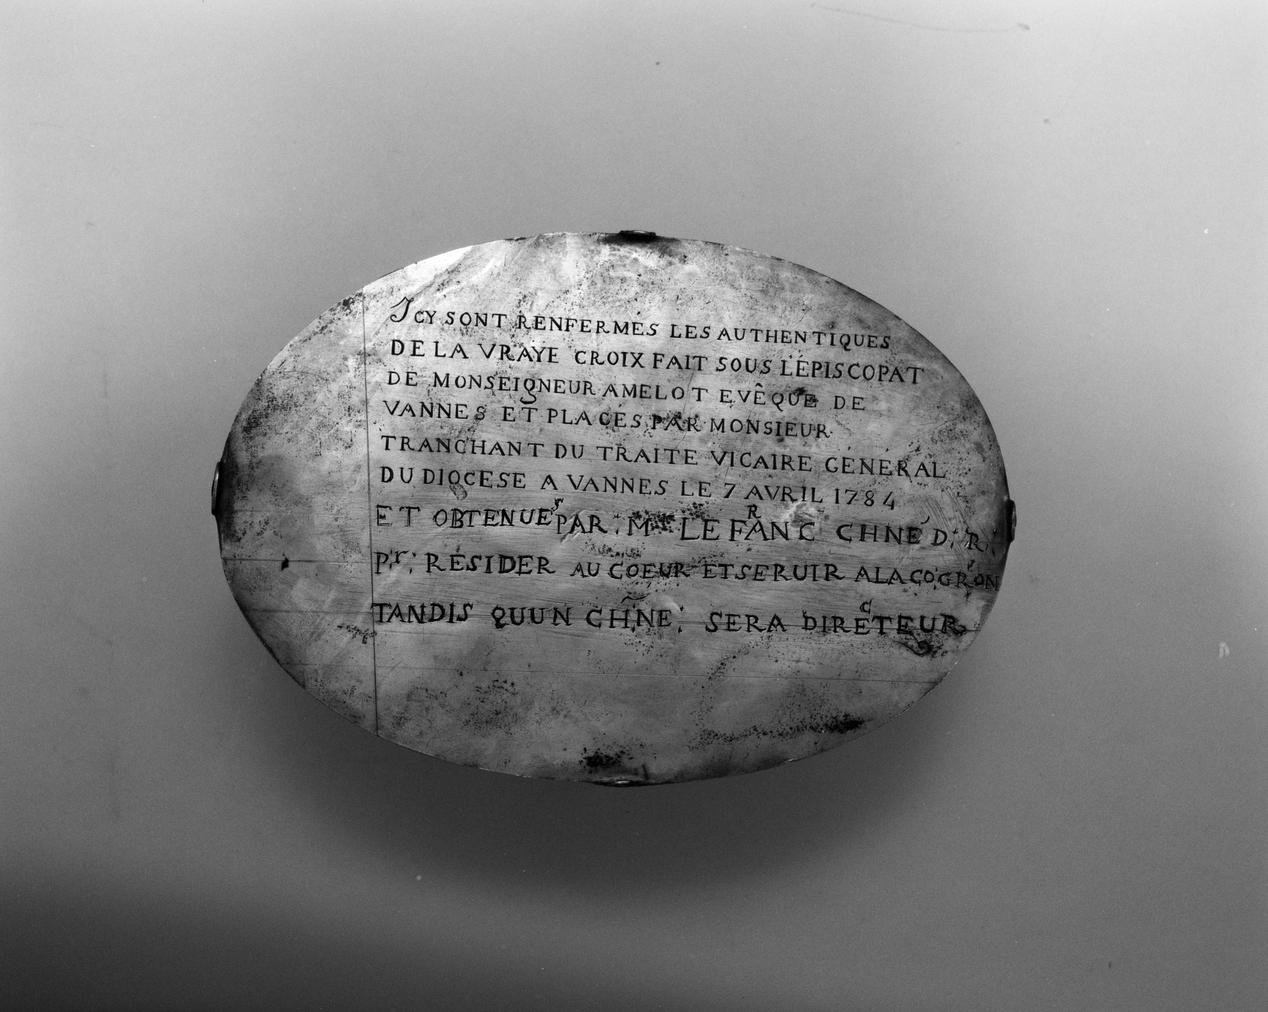 JCY SONT RENFERMES LES AUTHENTIQUES
DE LA VRAYE CROIX FAIT SOUS LÉPISCOPAT
DE MONSEIGNEUR AMELOT EVÊQUE DE
VANNES ET PLACES PAR MONSIEUR
TRANCHANT DU TRAITE VICAIRE GENERAL
DU DIOCESE A VANNES LE 7 AVRIL 1784
ET OBTENUES PAR Mr LE FRANC CHNE D. R.
Pr. RÉSIDER AU COEUR ET SERUIR A LA COGRON
TANDIS QUUN CHNE. SERA DIRECTEUR